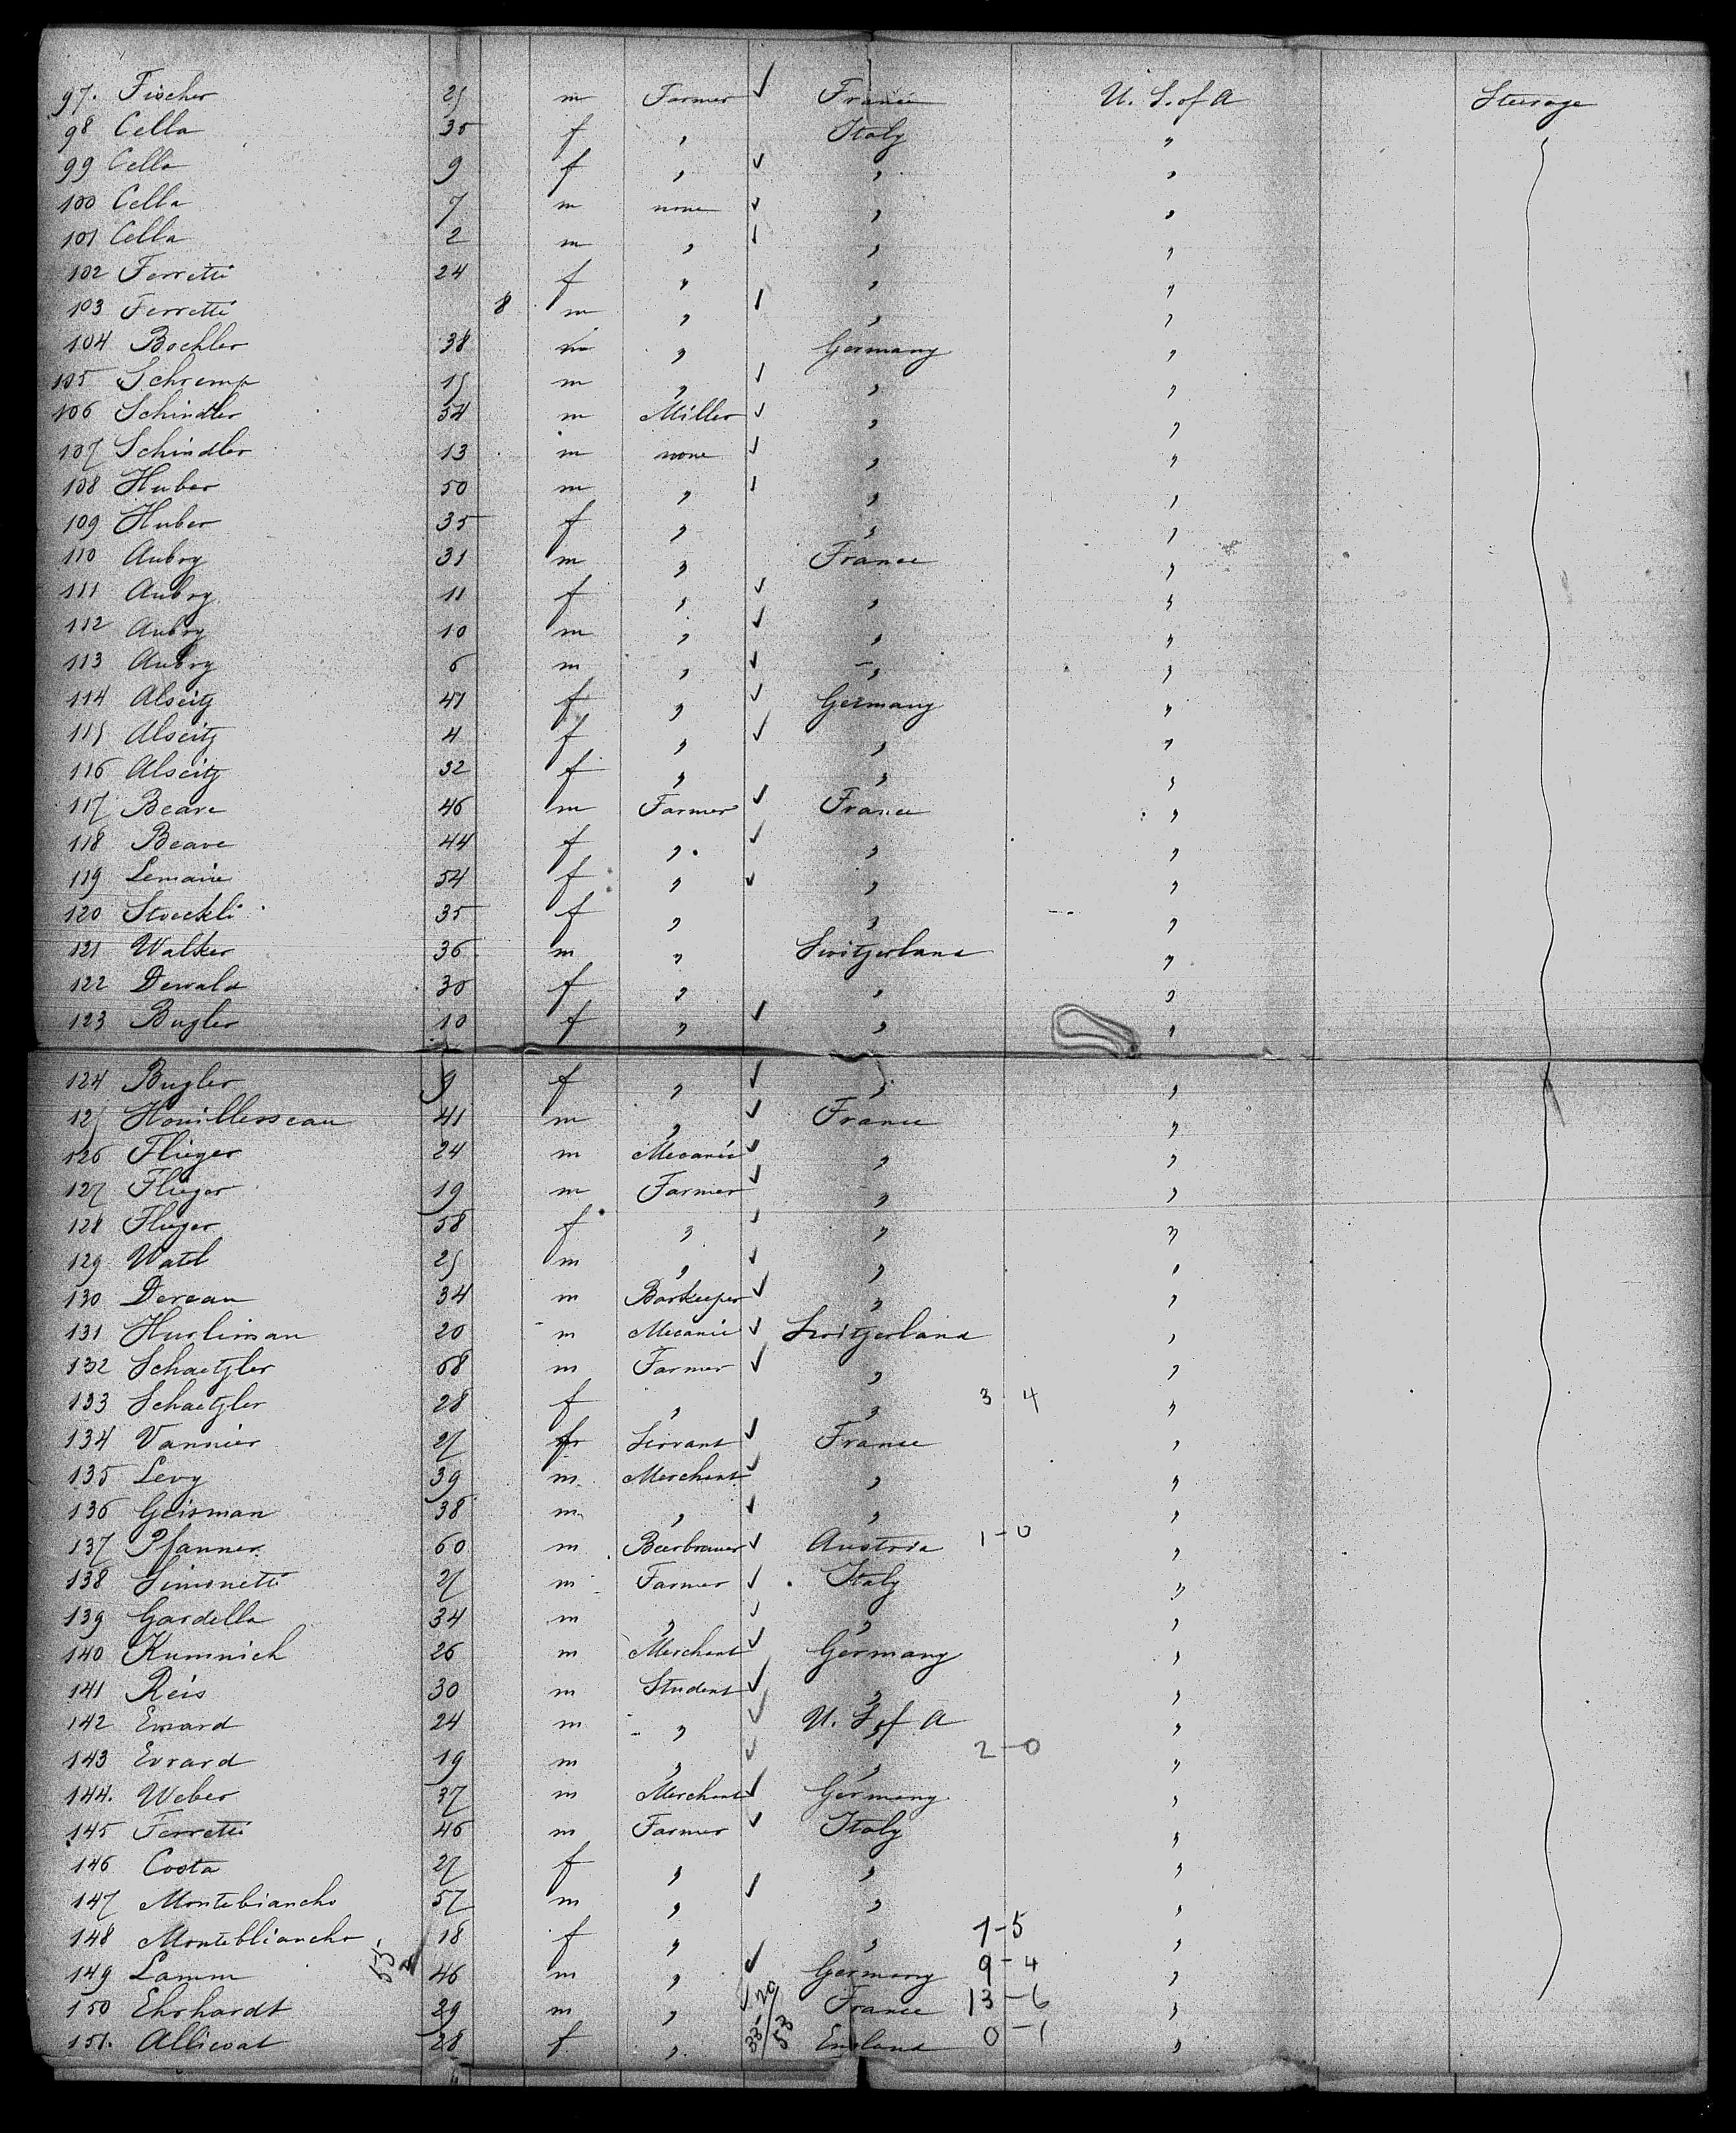 97. Fischer 25 m Farmer ✓ France U. S. of A Steerage
98 Cella 35 f " Italy "
99 Cella 9 f " ✓ " "
100 Cella 7 m none ✓ " "
101 Cella 2 m " ✓ " "
102 Ferretti 24 f " " "
103 Ferretti 8 m " ✓ " "
104 Bochler 38 m " Germany "
105 Schremp 15 m " ✓ " "
106 Schindler 54 m Miller ✓ " "
107 Schindler 13 m none ✓ " "
108 Huber 50 m " ✓ " "
109 Huber 35 f " " "
110 Aubry 31 m " France "
111 Aubry 11 f " ✓ " "
112 Aubry 10 m " ✓ " "
113 Aubry 6 m " ✓ " "
114 Alseitz 41 f " ✓ Germany "
115 Alseitz 4 f " ✓ " "
116 Alseitz 32 f " " "
117 Beave 46 m Farmer ✓ France "
118 Beave 44 f " ✓ " "
119 Lemaire 54 f " ✓ " "
120 Stoeckli 35 f " " "
121 Walker 36 m " Switzerland "
122 Dewald 30 f " " "
123 Bugler 10 f " ✓ " "
124 Bugler 9 f " ✓ " "
125 Houillesseau 41 m " ✓ France "
126 Flieger 24 m Mecanic ✓ " "
127 Flieger 19 m Farmer ✓ " "
128 Flieger 58 f " ✓ " "
129 Watel 25 m " ✓ " "
130 Dereau 34 m Barkeeper ✓ " "
131 Hurliman 20 m Mecanic ✓ Switzerland "
132 Schaetzler 68 m Farmer ✓ " "
133 Schaetzler 28 f " " 3 4 "
134 Vannier 27 f Servant ✓ France "
135 Levy 39 m Merchant ✓ " "
136 Geisman 38 m " ✓ " "
137 Pfanner 60 m Beerbrauer ✓ Austria 1-0 "
138 Simonetti 27 m Farmer ✓ Italy "
139 Gardella 34 m " ✓ " "
140 Kumnich 26 m Merchant ✓ Germany "
141 Reis 30 m Student ✓ " "
142 Evrard 24 m " ✓ U. S. of A "
143 Evrard 19 m " ✓ " 2-0 "
144. Weber 37 m Merchant ✓ Germany "
145 Ferretti 46 m Farmer ✓ Italy "
146 Costa 27 f " " "
147 Montebiancho 57 m " ✓ " "
148 Montebliancho 18 f " " 7-5 "
149 Lamm 55 46 m " ✓ Germany 9-4 "
150 Ehrhardt 29 m " ✓ 20 France 13-6 "
151. Allieoat 28 f " 33/53 England 0-1 "